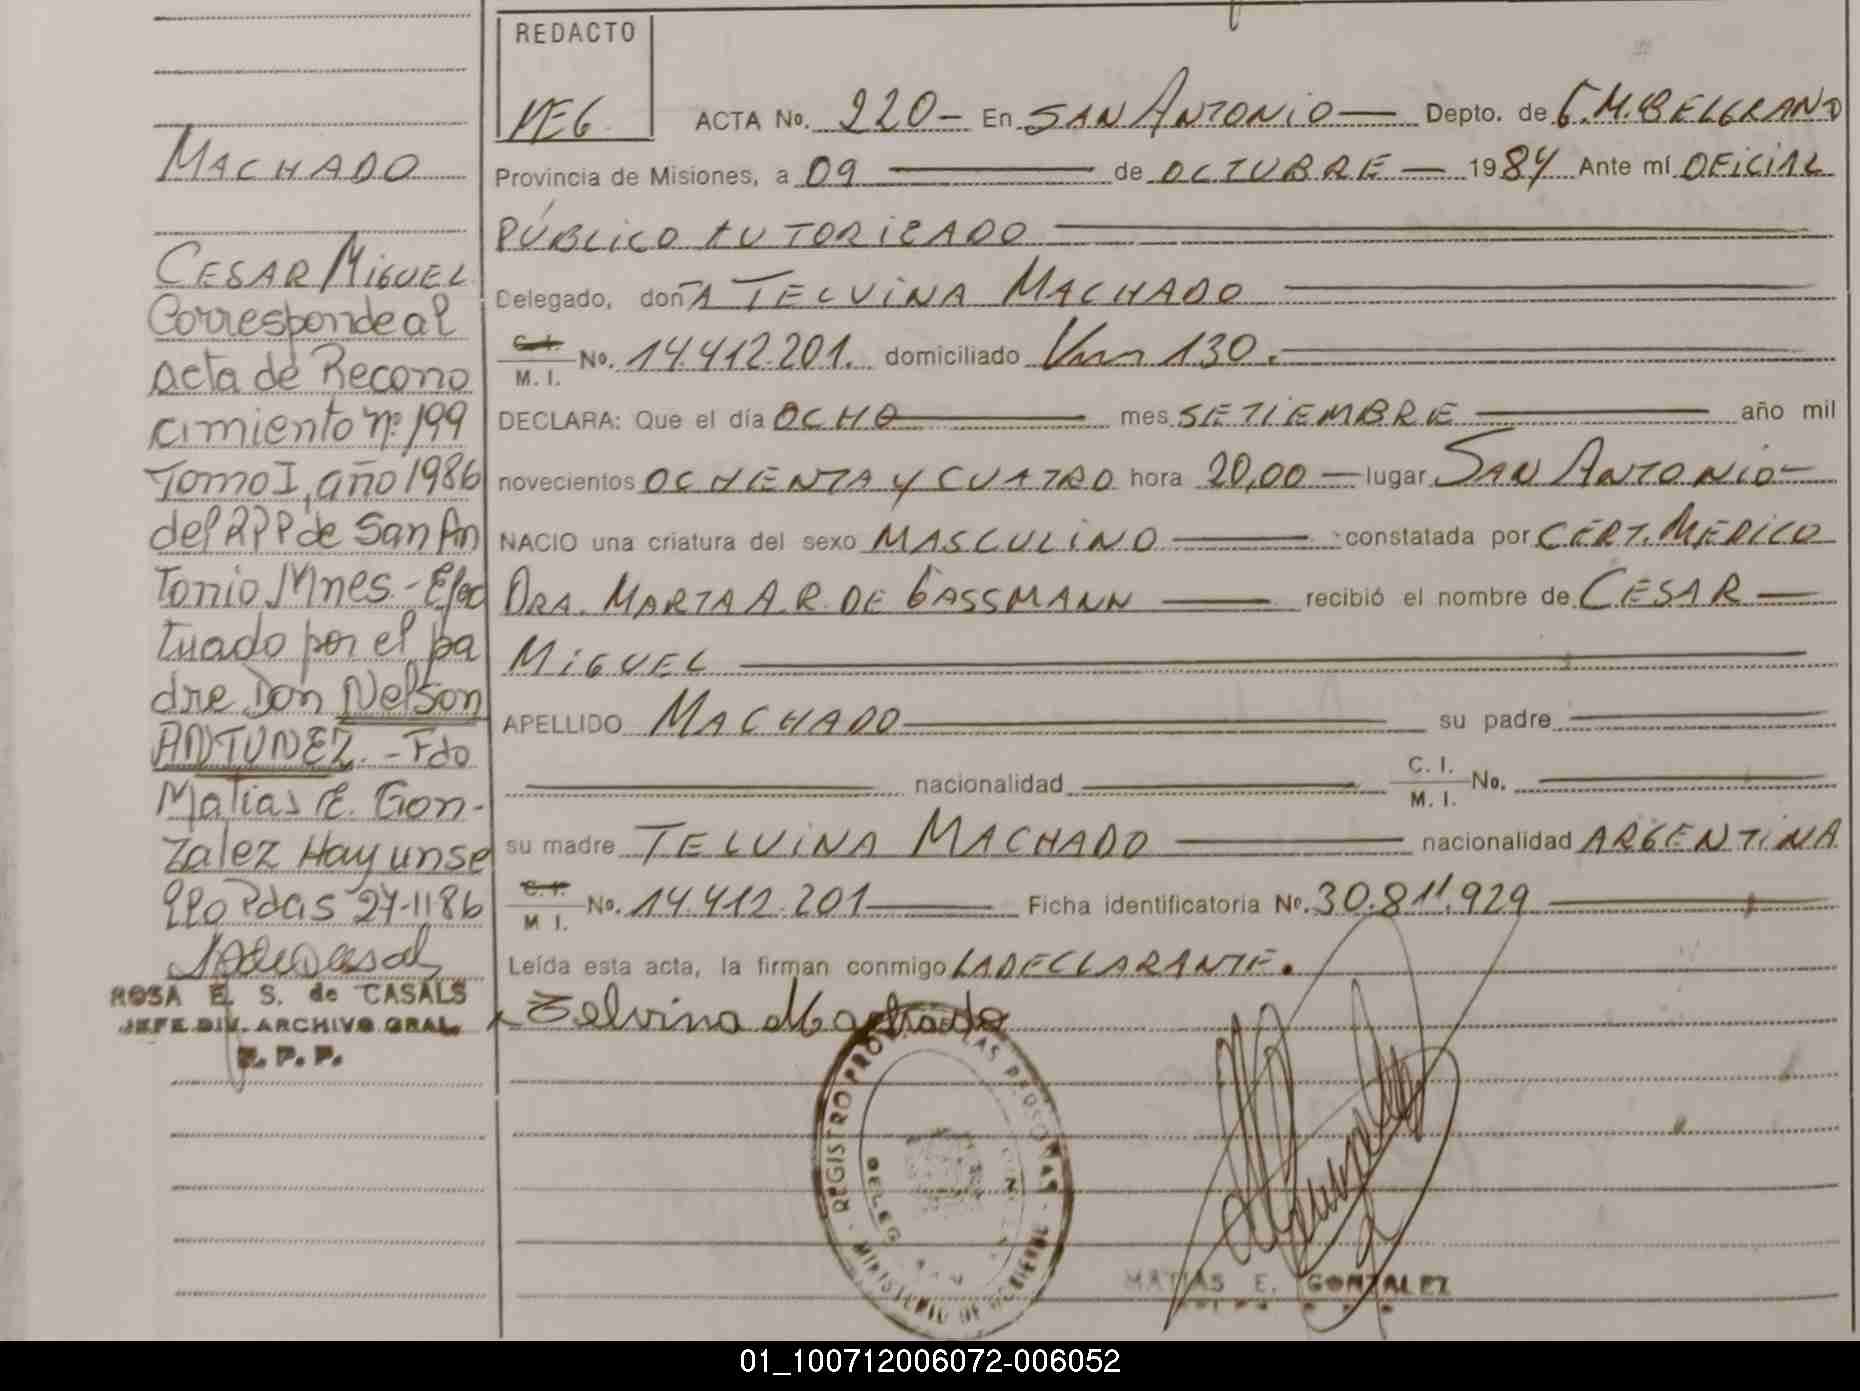 MACHADO
CESAR MIGUEL
Corresponde al
acta de Recono
cimiento nº 199
Tomo I, año 1986
del RPP de San An
Tonio Mnes.- Efec
tuado por el pa
dre Don Nelson
ANTUNEZ.- Fdo
Matias E. Gon-
zalez Hay un se
llo Pdas 27-11-86
ROSA E. S. de CASALS
JEFE DIV. ARCHIVO GRAL.
R. P. P.
REDACTO
MEG
ACTA No. 220- En SAN ANTONIO — Depto. de G.M.BELGRANO
Provincia de Misiones, a 09 — de OCTUBRE — 1984 Ante mí OFICIAL
PÚBLICO AUTORIZADO
Delegado, doñA TELVINA MACHADO
C. I. M. I. No. 14.412.201. domiciliado Km 130.
DECLARA: Que el día OCHO — mes SETIEMBRE — año mil
novecientos OCHENTA Y CUATRO hora 20,00 — lugar SAN ANTONIO-
NACIO una criatura del sexo MASCULINO — constatada por CERT. MEDICO
DRA. MARTA A.R. DE GASSMANN — recibió el nombre de CESAR —
MIGUEL
APELLIDO MACHADO — su padre —
— nacionalidad — C. I. M. I. No. —
su madre TELVINA MACHADO — nacionalidad ARGENTINA
C. I. M I. No. 14.412.201 — Ficha identificatoria Nº. 30.811.929 —
Leída esta acta, la firman conmigo LA DECLARANTE.
x Telvina Machado
REGISTRO PROV. DE LAS PERSONAS
MINISTERIO DE GOBIERNO
DELEG
MATIAS E. GONZALEZ
01_100712006072-006052